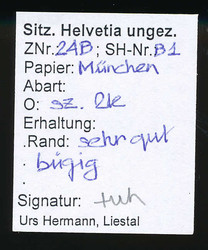 Sitz. Helvetia ungez.
ZNr. 2AB; SH-Nr. B1
Papier: München
Abart:
O: sz. 2k
Erhaltung:
.Rand: sehr gut
. bügig
.
Signatur:
Urs Hermann, Liestal